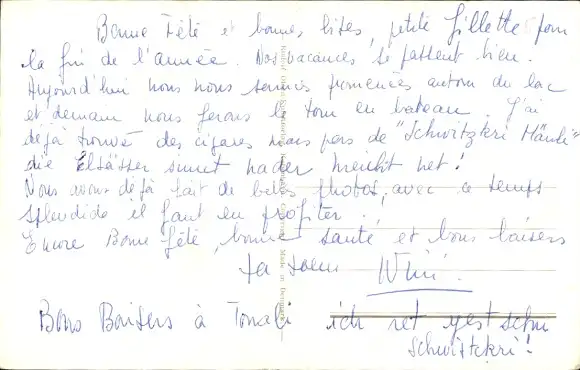 Bonne Fête et bonnes bises, petite fillette pour
la fin de l'année. Nos vacances se passent bien.
Aujourd'hui nous nous sommes promenées autour du lac
et demain nous ferons le tour en bateau. J'ai
déjà trouvé des cigares mais pas de "Schwitzkri
die Elsässer net!
Nous avons déjà fait de belles photos, avec ce temps
splendide il faut en profiter.
Encore Bonne fête, bonne santé et bons baisers
ta soeur Wini.
Bons Baisers à Tonali ich ret
Schwitzkri!
Made in